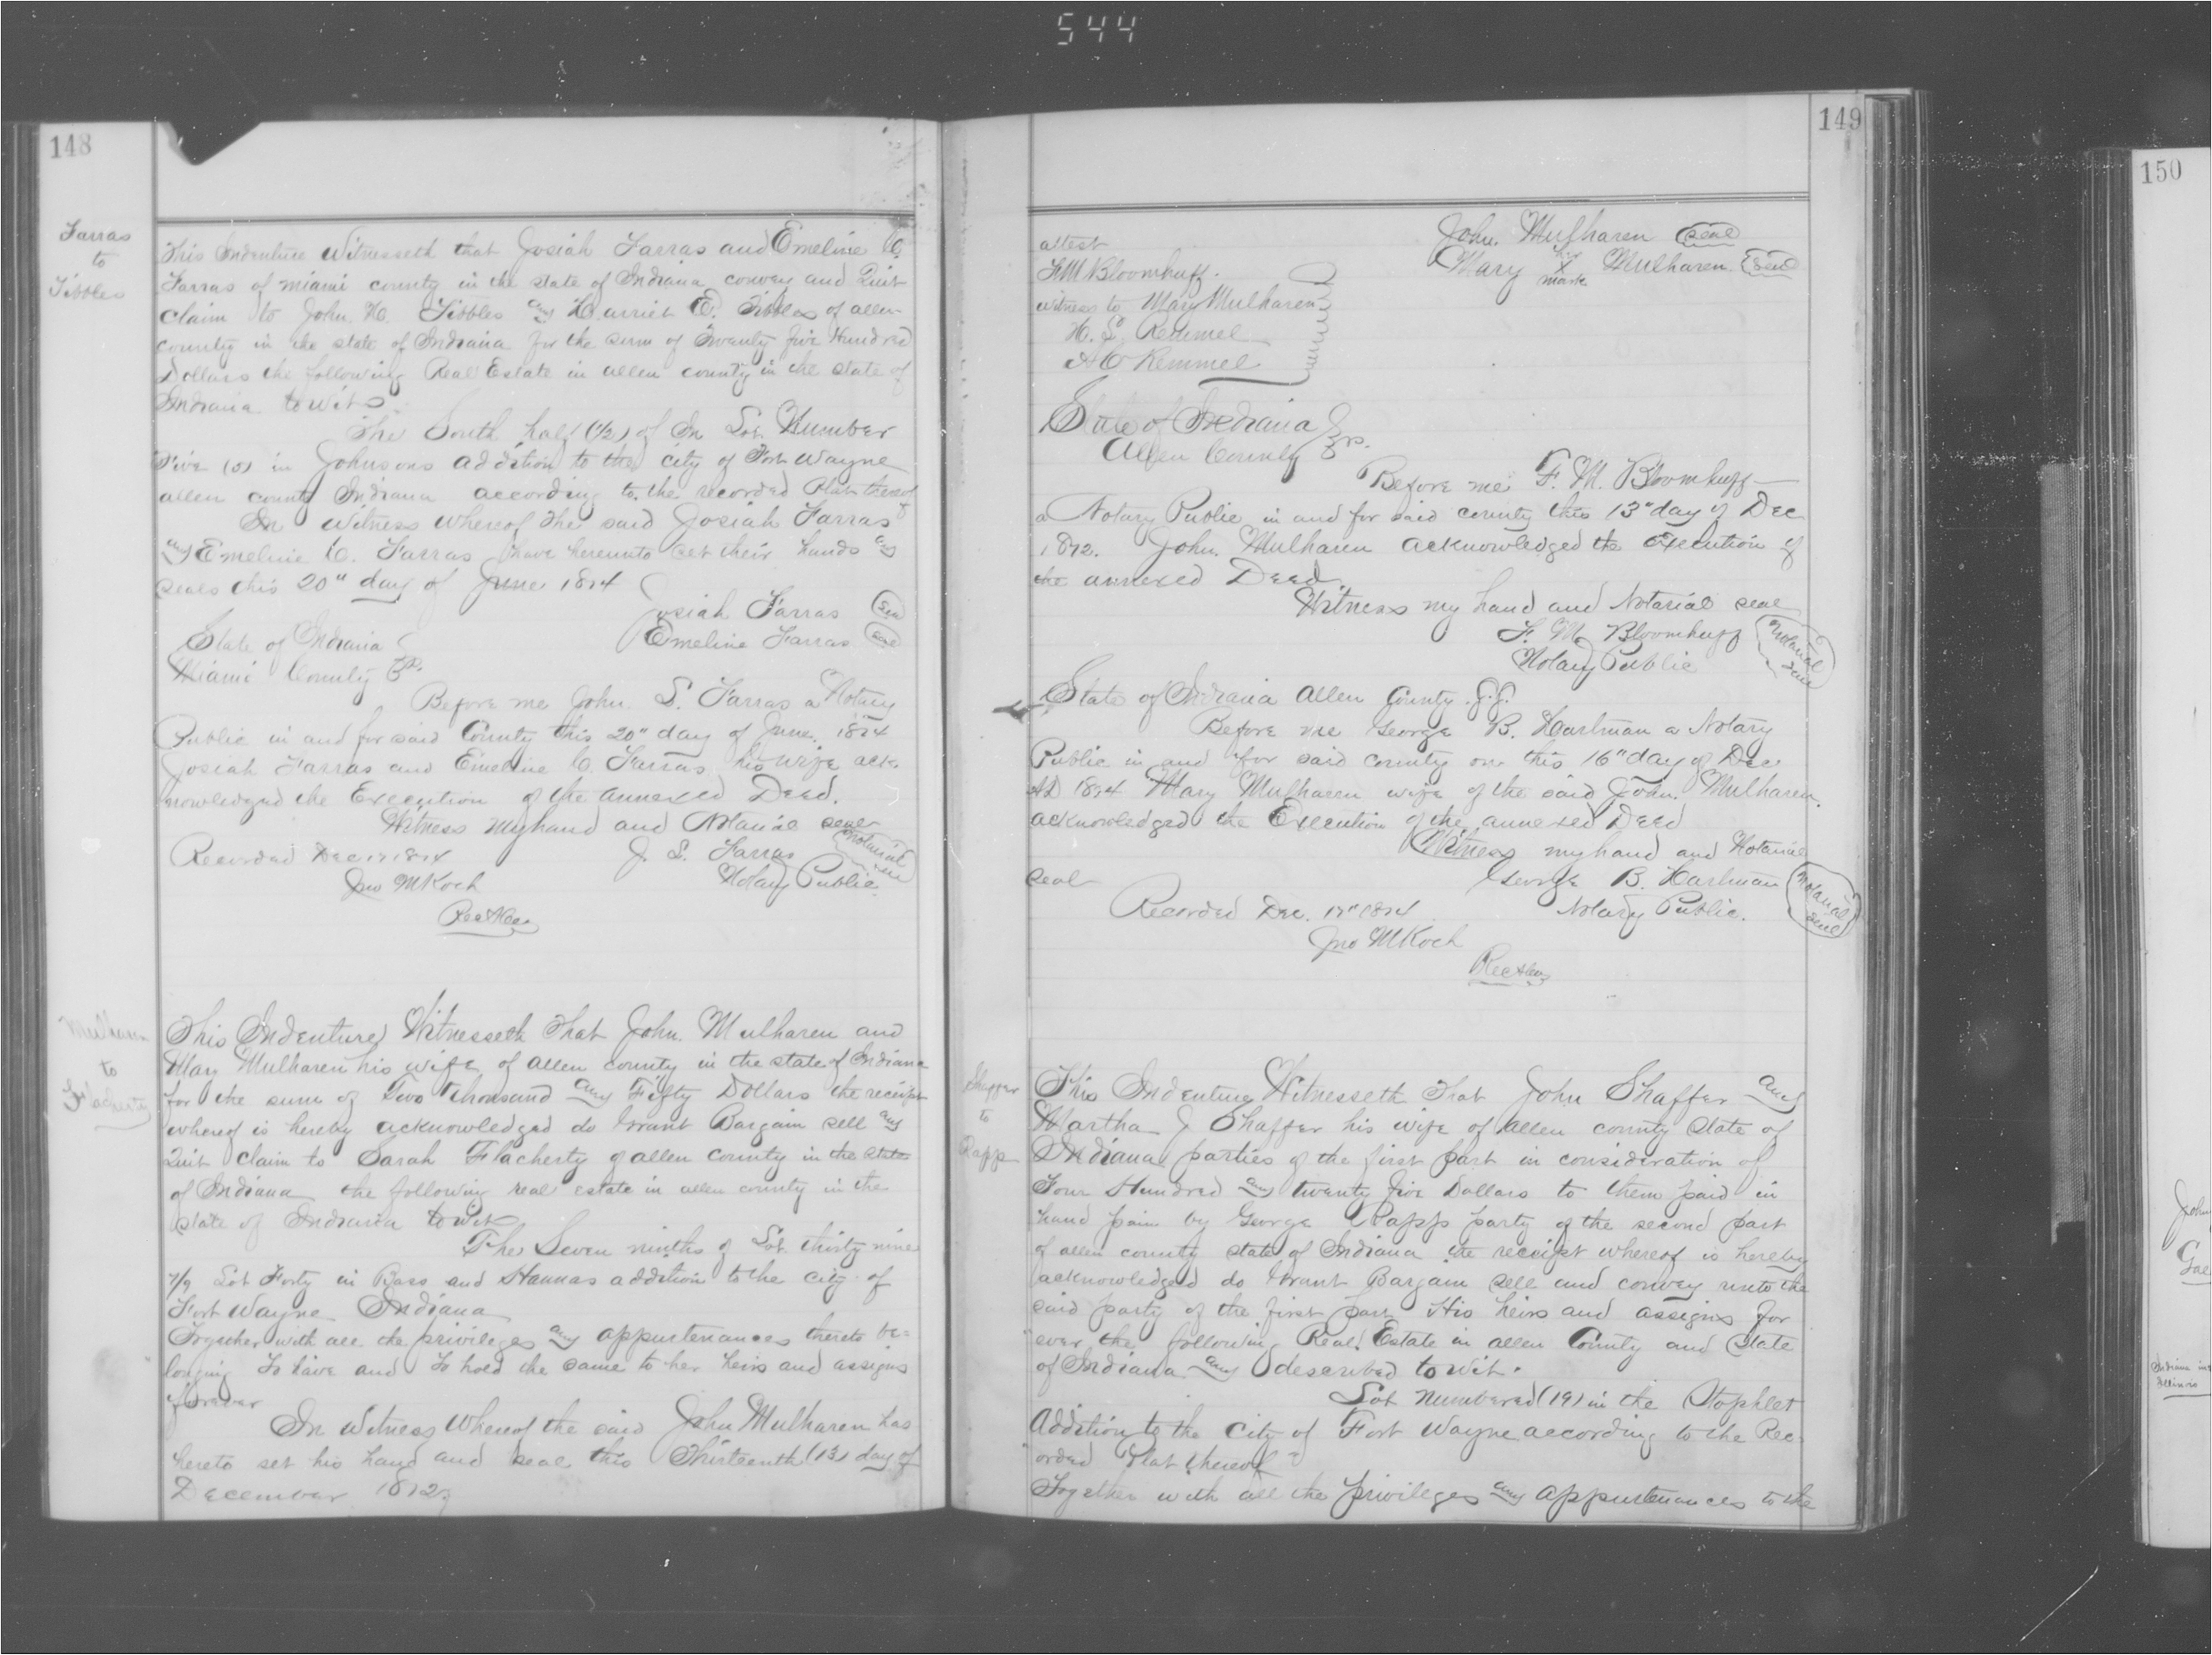 544
148
Farras
to
Tibbles
This Indenture Witnesseth that Josiah Farras and Emeline C.
Farras of Miami county in the state of Indiana convey and Quit
claim to John H. Tibbles and Harriet E. Tibbles of allen
county in the state of Indiana for the sum of Twenty five Hundred
Dollars the following Real Estate in allen county in the state of
Indiana to wit
The South half (1/2) of In Lot Number
Five (5) in Johnsons addition to the city of Fort Wayne
allen county Indiana according to the recorded Plat thereof
In Witness whereof The said Josiah Farras
and Emeline C. Farras have hereunto set their hands and
seals this 20" day of June 1874
Josiah Farras Seal
Emeline Farras Seal
State of Indiana
Miami County SS.
Before me John S. Farras a Notary
Public in and for said County this 20" day of June 1874
Josiah Farras and Emeline C. Farras his wife ack
nowledged the Execution of the annexed Deed.
Witness my hand and Notarial seal
J. S. Farras Notarial Seal
Notary Public
Recorded Dec 17 1874
Jno M Koch
Rec
Mulharen
to
Flacherty
This Indenture Witnesseth That John Mulharen and
Mary Mulharen his wife of allen county in the state of Indiana
for the sum of Two thousand and Fifty Dollars the receipt
whereof is hereby acknowledged do Grant Bargain sell and
Quit claim to Sarah Flacherty of allen county in the state
of Indiana the following real estate in allen county in the
state of Indiana to wit
The Seven ninths of Lot thirty nine
7/9 Lot Forty in Bass and Hannas addition to the city of
Fort Wayne Indiana
Together with all the privileges and appurtenances thereto be=
longing To have and To hold the same to her heirs and assigns
forever
In Witness Whereof the said John Mulharen has
hereto set his hand and seal this Thirteenth (13) day of
December 1872
149
John Mulharen seal
Mary her X mark Mulharen Seal
attest
F. M Bloomhuff.
witness to Mary Mulharen
H. S. Remmel
A C Remmel
State of Indiana
Allen County ss.
Before me F. M. Bloomhuff
a Notary Public in and for said county this 13" day of Dec
1872. John Mulharen acknowledged the execution of
the annexed Deed.
Witness my hand and Notarial seal
F. M. Bloomhuff Notarial Seal
Notary Public
State of Indiana Allen County S.S.
Before me George B. Hartman a Notary
Public in and for said county on this 16" day of Dec
AD 1874 Mary Mulharen wife of the said John Mulharen
acknowledged the Execution of the annexed Deed
Witness my hand and Notarial
seal George B. Hartman Notarial Seal
Notary Public.
Recorded Dec. 17" 1874
Jno M Koch
Rec
Shaffer
to
Rapp
This Indenture Witnesseth That John Shaffer and
Martha J Shaffer his wife of Allen county State of
Indiana parties of the first part in consideration of
Four Hundred and twenty five Dollars to them paid in
hand paim by George Rapp party of the second part
of allen county state of Indiana the receipt whereof is hereby
acknowledged do Grant Bargain Sell and convey unto the
said party of the first part His heirs and assigns for
ever the following Real Estate in allen County and State
of Indiana and described to wit.
Lot numbered (19) in the Stophlet
Addition to the City of Fort Wayne according to the Rec-
orded Plat thereof
Together with all the privileges and appurtenances to the
150
John
Indiana
Illinois